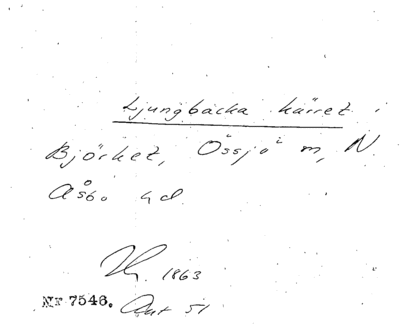 Ljungbacka kärret i
Björket, Össjö m, N.
Åsbo hd.
1863
Nr 7546. Ant 51